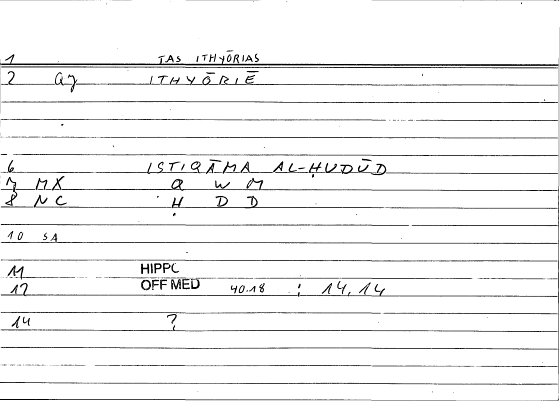 1 TAS ITHYŌRIAS
2 aj ITHYŌRIĒ
6 ISTIQĀMA AL-ḤUDŪD
7 MX Q W M
8 NC Ḥ D D
10 SA
11 HIPPC
12 OFF MED 40.18 : 14,14
14 ?